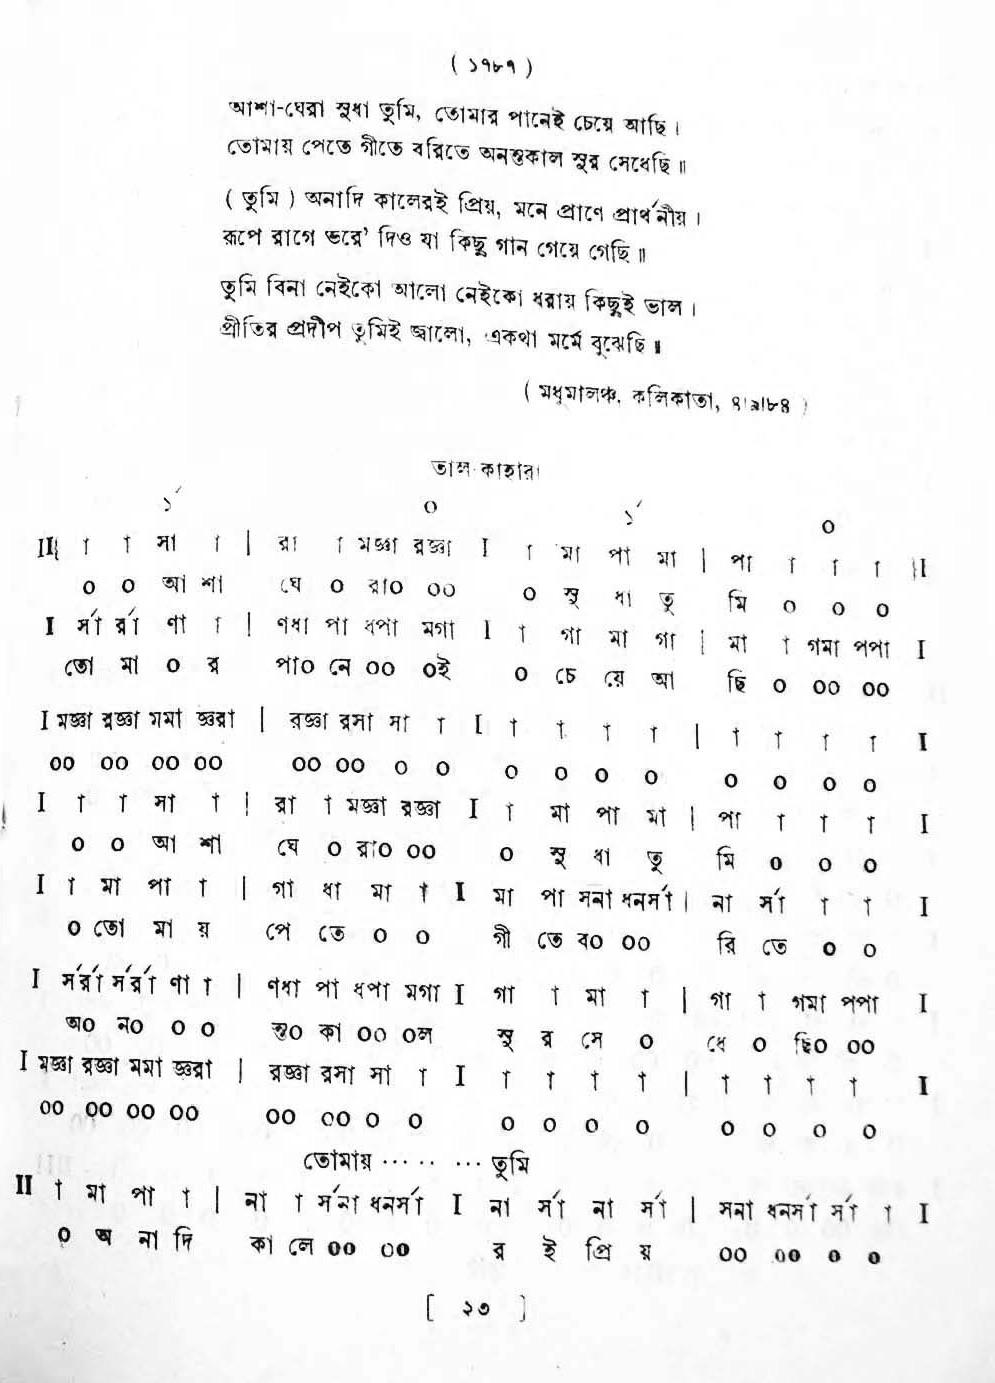 ( ১৭৮৭ )
আশা-ঘেরা সুধা তুমি, তোমার পানেই চেয়ে আছি ।
তোমায় পেতে গীতে বরিতে অনন্তকাল সুর সেধেছি ॥
( তুমি ) অনাদি কালেরই প্রিয়, মনে প্রাণে প্রার্থনীয় ।
রূপে রাগে ভরে’ দিও যা কিছু গান গেয়ে গেছি ॥
তুমি বিনা নেইকো আলো নেইকো ধরায় কিছুই ভাল ।
প্রীতির প্রদীপ তুমিই জ্বালো, একথা মর্মে বুঝেছি ॥
( মধুমালঞ্চ, কলিকাতা, ৪।৯।৮৪ )
তাল কাহারা
১´ ০ ১´ ০
II{ া া সা া | রা া মজ্ঞা রজ্ঞা I া মা পা মা | পা া া া }I
০ ০ আ শা ঘে ০ রা০ ০০ ০ সু ধা তু মি ০ ০ ০
I র্সা র্রা ণা া | ণধা পা ধপা মগা I া গা মা গা | মা া গমা পপা I
তো মা ০ র পা০ নে ০০ ০ই ০ চে য়ে আ ছি ০ ০০ ০০
I মজ্ঞা রজ্ঞা মমা জ্ঞরা | রজ্ঞা রসা সা া I া া া া | া া া া I
০০ ০০ ০০ ০০ ০০ ০০ ০ ০ ০ ০ ০ ০ ০ ০ ০ ০
I া া সা া | রা া মজ্ঞা রজ্ঞা I া মা পা মা | পা া া া I
০ ০ আ শা ঘে ০ রা০ ০০ ০ সু ধা তু মি ০ ০ ০
I া মা পা া | গা ধা মা া I মা পা সনা ধনর্সা | না র্সা া া I
০ তো মা য় পে তে ০ ০ গী তে ব০ ০০ রি তে ০ ০
I র্সর্রা র্সর্রা ণা া | ণধা পা ধপা মগা I গা া মা া | গা া গমা পপা I
অ০ ন০ ০ ০ ন্ত০ কা ০০ ০ল সু র সে ০ ধে ০ ছি০ ০০
I মজ্ঞা রজ্ঞা মমা জ্ঞরা | রজ্ঞা রসা সা া I া া া া | া া া া I
০০ ০০ ০০ ০০ ০০ ০০ ০ ০ ০ ০ ০ ০ ০ ০ ০ ০
তোমায় ··· ·· ··· তুমি
II া মা পা া | না া র্সনা ধনর্সা I না র্সা না র্সা | সনা ধনর্সা র্সা া I
০ অ না দি কা লে ০০ ০০ র ই প্রি য় ০০ ০০ ০ ০
[ ২৩ ]